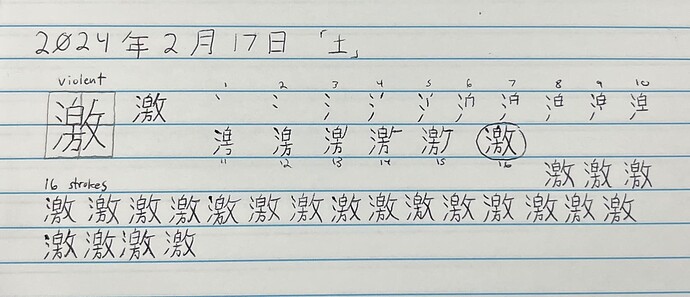 2024年2月17日「土」
violent
激 激
1 2 3 4 5 6 7 8 9 10
激
11 12 13 14 15 16
激 激 激
16 strokes
激 激 激 激 激 激 激 激 激 激 激 激 激 激 激
激 激 激 激